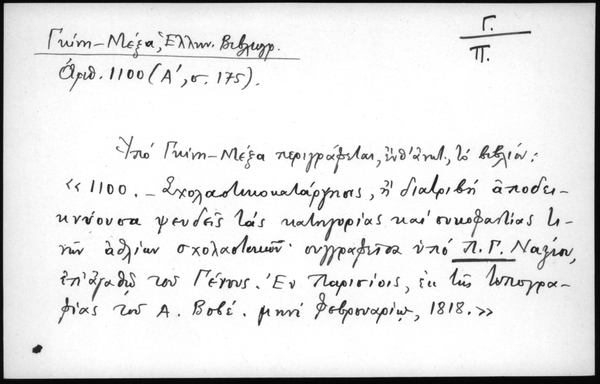 Γκίνη-Μέξα, Ἑλλην. Βιβλιογρ.
Γ.
Π.
Ἀριθ. 1100 (Α', σ. 175).
Ὑπό Γκίνη-Μέξα περιγράφεται, ἐνθ' ἀνωτ., τὸ βιβλίον:
«1100. – Σχολαστικοκατάργησις, ἢ διατριβὴ ἀποδει-
κνύουσα ψευδεῖς τὰς κατηγορίας καὶ συκοφαντίας τι-
νῶν ἀθλίων σχολαστικῶν· συγγραφεῖσα ὑπό Π. Γ. Ναξίου,
ἐπ' ἀγαθῷ τοῦ Γένους. Ἐν Παρισίοις, ἐκ τῆς τυπογρα-
φίας τοῦ Α. Βοβέ. μηνὶ Φεβρουαρίῳ, 1818.»